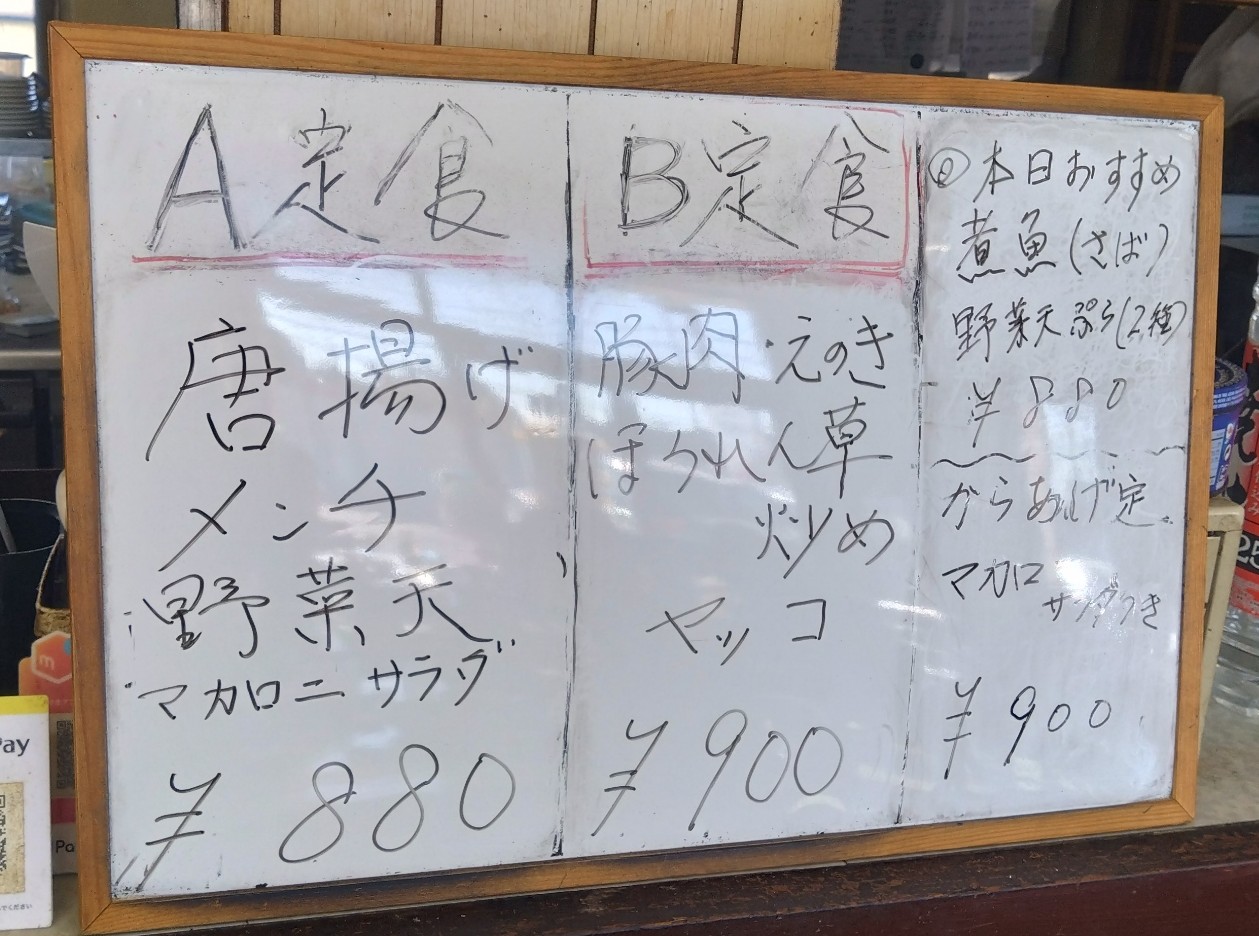 A定食
唐揚げ
メンチ
野菜天
マカロニサラダ
¥880
B定食
豚肉・えのき
ほうれん草
炒め
ヤッコ
¥900
本日おすすめ
煮魚(さば)
野菜天ぷら(2種)
¥880
からあげ定
マカロ
サラダつき
¥900
Pay
25